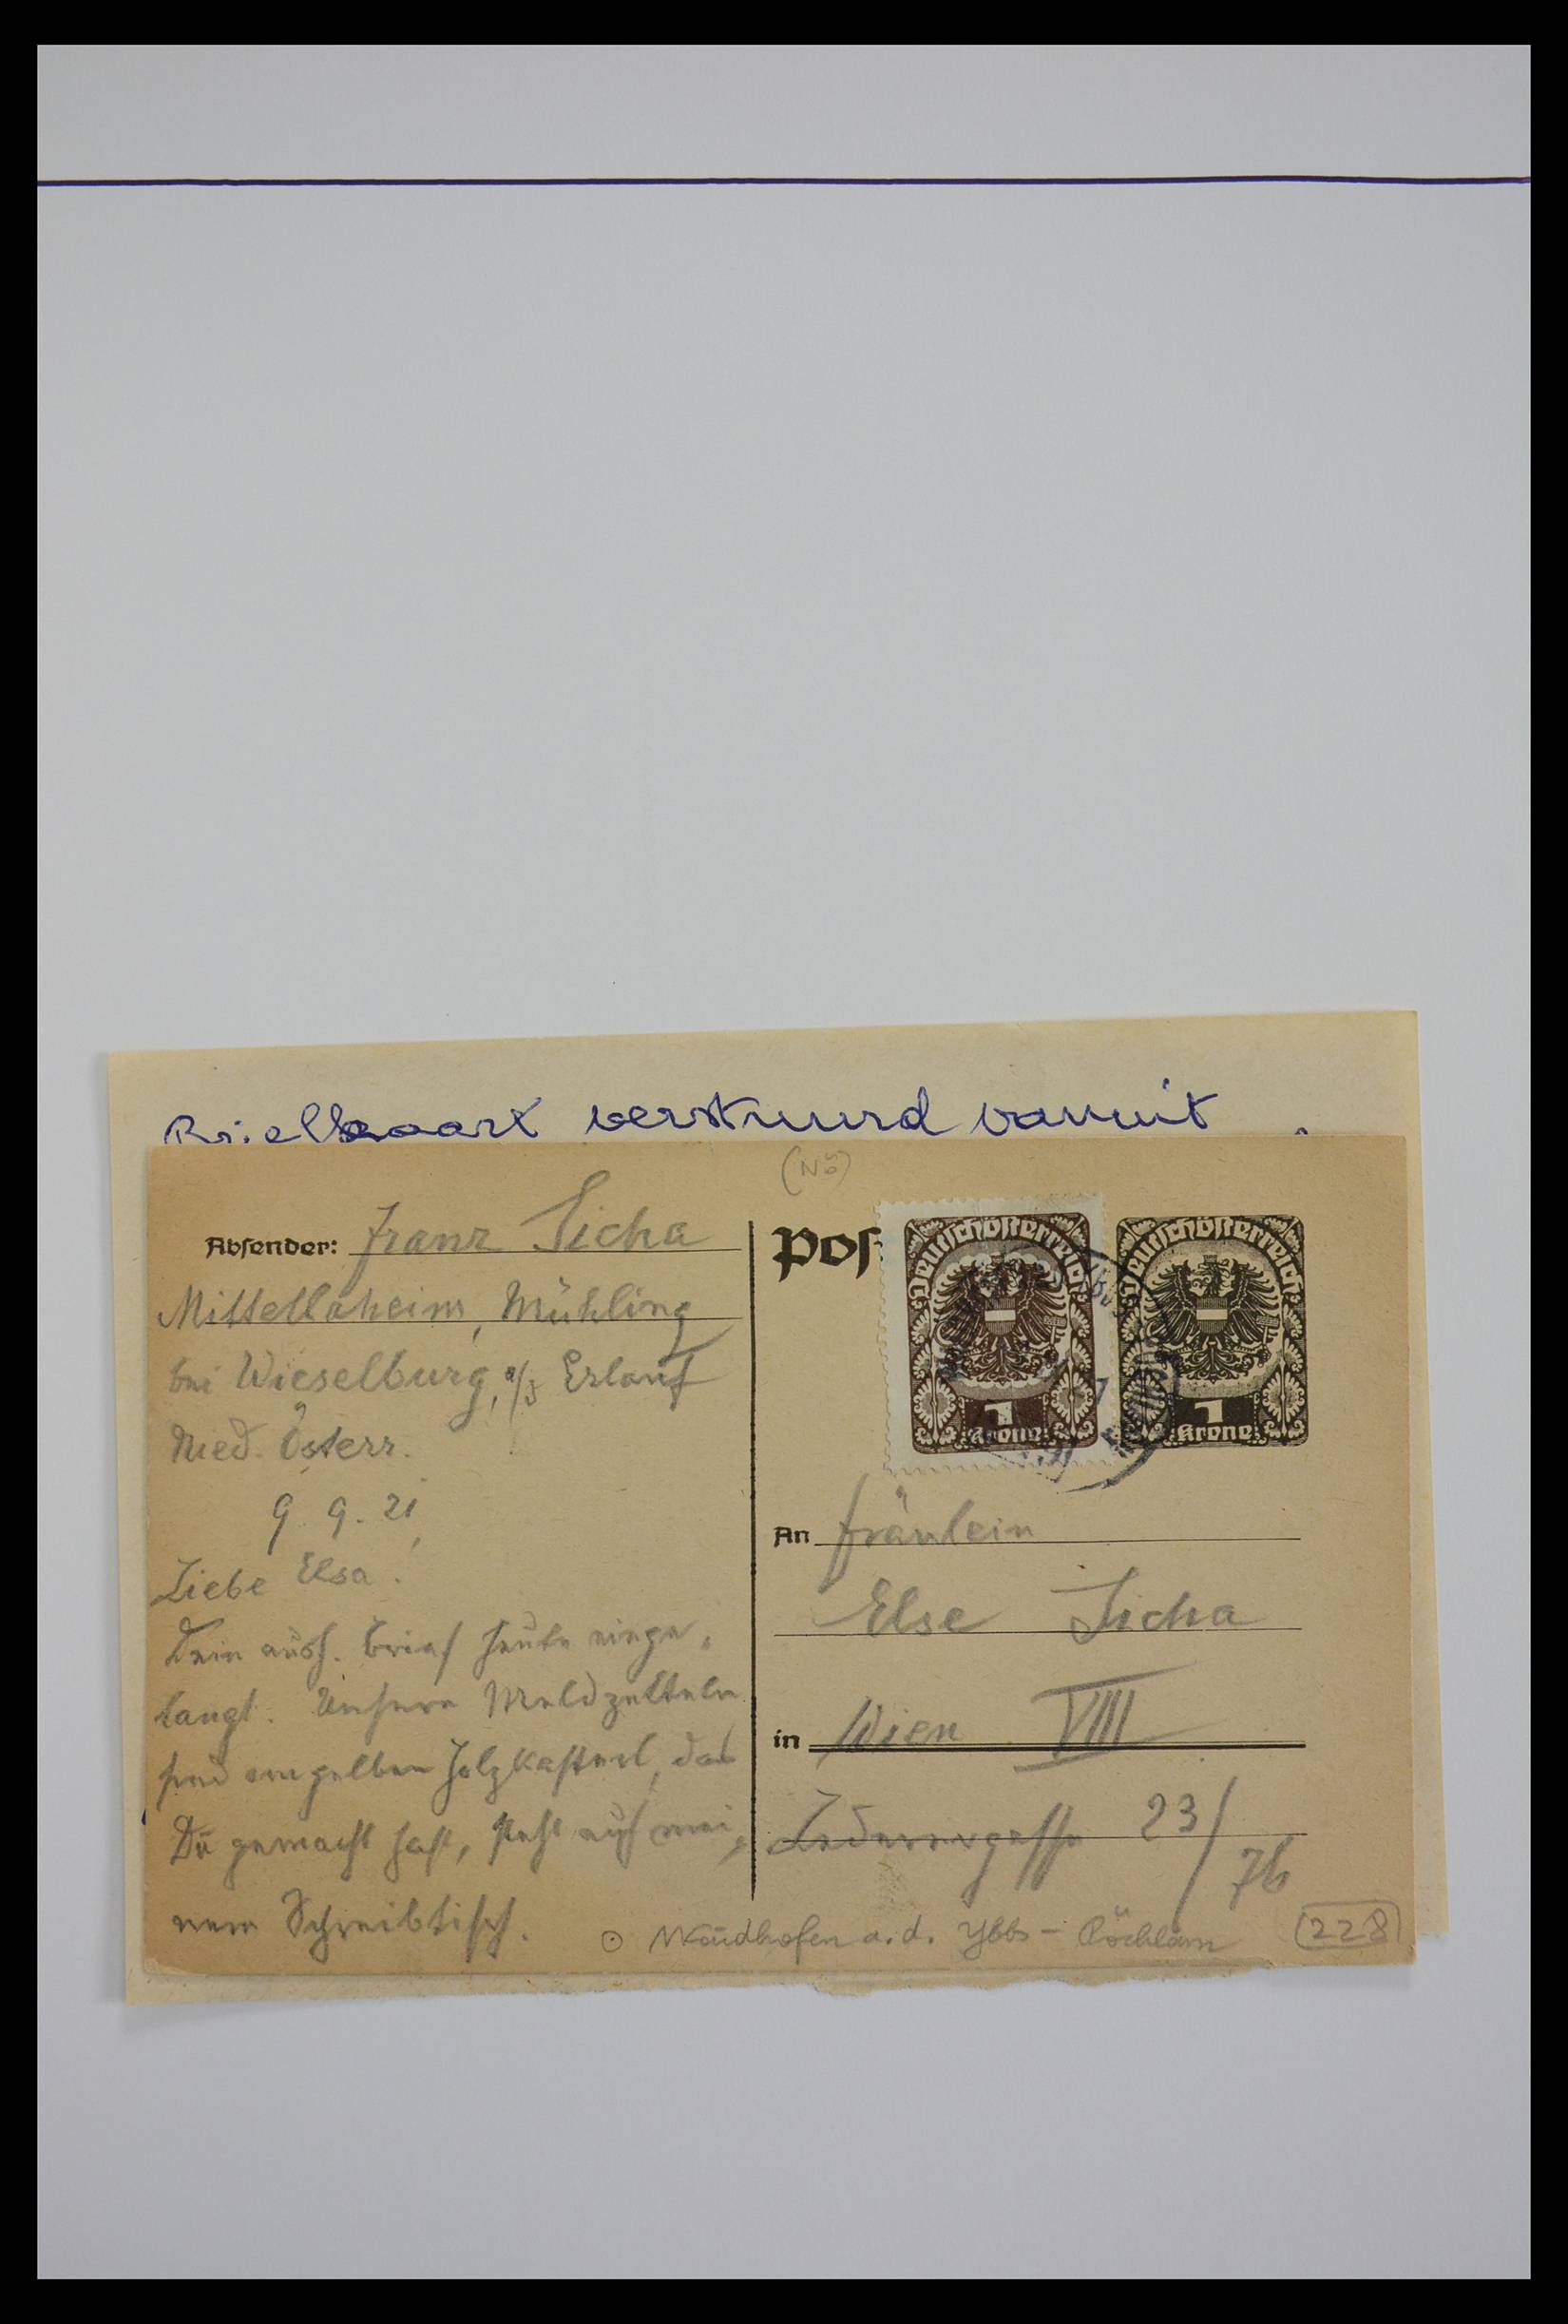 Briefkaart verstuurd vanuit
(NÖ)
Absender: Franz Sicha
Mühling
bei Wieselburg, a/d Erlauf
Nied. Österr.
9. 9. 21
Liebe Elsa!
Dein ausf. Brief heute einge-
langt. Unsere Meldzetteln
sind im gelben Holzkasterl, das
Du gemacht hast, steht auf mei-
nem Schreibtisch.
Pos
Deutschösterreich
1
Krone
Deutschösterreich
1
Krone
An Fräulein
Else Sicha
in Wien VIII
Lederergasse 23/
76
Waidhofen a.d. Ybbs - Pöchlarn
228